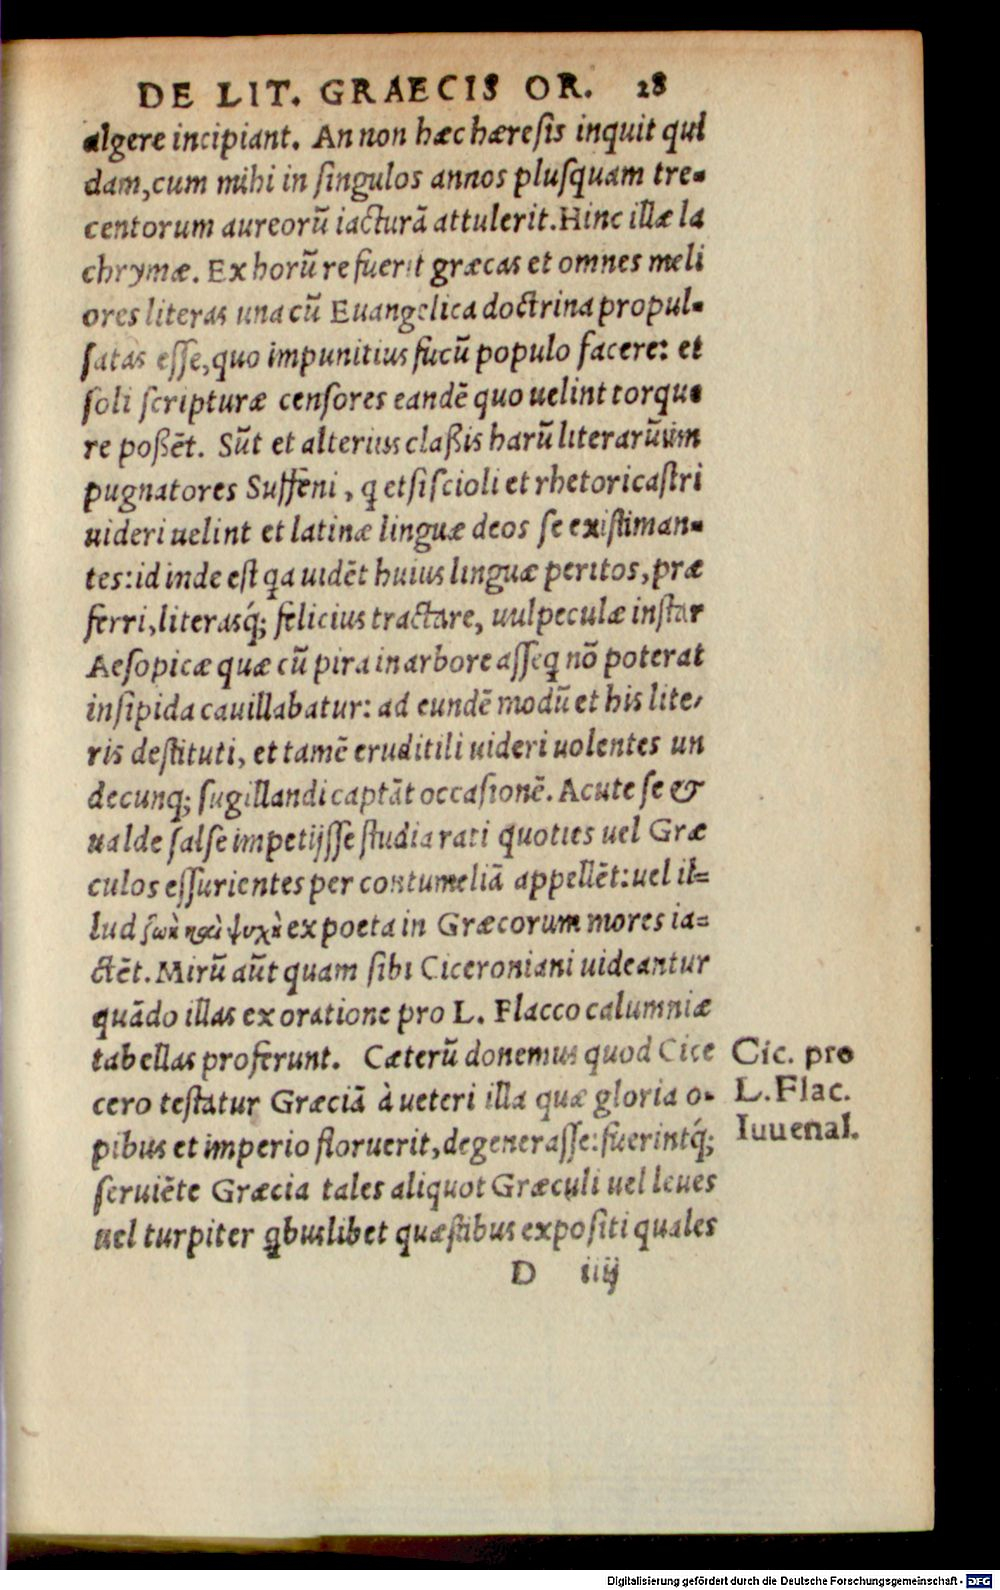 DE LIT. GRAECIS OR. 28
algere incipiant. An non hæc hæresis inquit qui
dam, cum mihi in singulos annos plusquam tre-
centorum aureorũ iacturã attulerit. Hinc illæ la
chrymæ. Ex horũ re fuerit græcas et omnes meli
ores literas una cũ Euangelica doctrina propul-
satas esse, quo impunitius fucũ populo facere: et
soli scripturæ censores eandẽ quo uelint torque
re possẽt. Sũt et alterius classis harũ literarũ im
pugnatores Suffeni, q etsi scioli et rhetoricastri
uideri uelint et latinæ linguæ deos se existiman-
tes: id inde est qa uidẽt huius linguæ peritos, præ
ferri, literasq́; felicius tractare, uulpeculæ instar
Aesopicæ quæ cũ pira in arbore asseq nõ poterat
insipida cauillabatur: ad eundẽ modũ et his lite-
ris destituti, et tamẽ eruditili uideri uolentes un
decunq; sugillandi captãt occasionẽ. Acute se &
ualde salse impetijsse studia rati quoties uel Græ
culos essurientes per contumeliã appellẽt: uel il=
lud ex poeta in Græcorum mores ia=
ctẽt. Mirũ aũt quam sibi Ciceroniani uideantur
quãdo illas ex oratione pro L. Flacco calumniæ
tabellas proferunt. Cæterũ donemus quod Cice
cero testatur Græciã à ueteri illa quæ gloria o-
pibus et imperio floruerit, degenerasse: fuerintq́;
seruiẽte Græcia tales aliquot Græculi uel leues
uel turpiter qbuslibet quæstibus expositi quales
D iiij
Cic. pro
L. Flac.
Iuuenal.
Digitalisierung gefördert durch die Deutsche Forschungsgemeinschaft - DFG